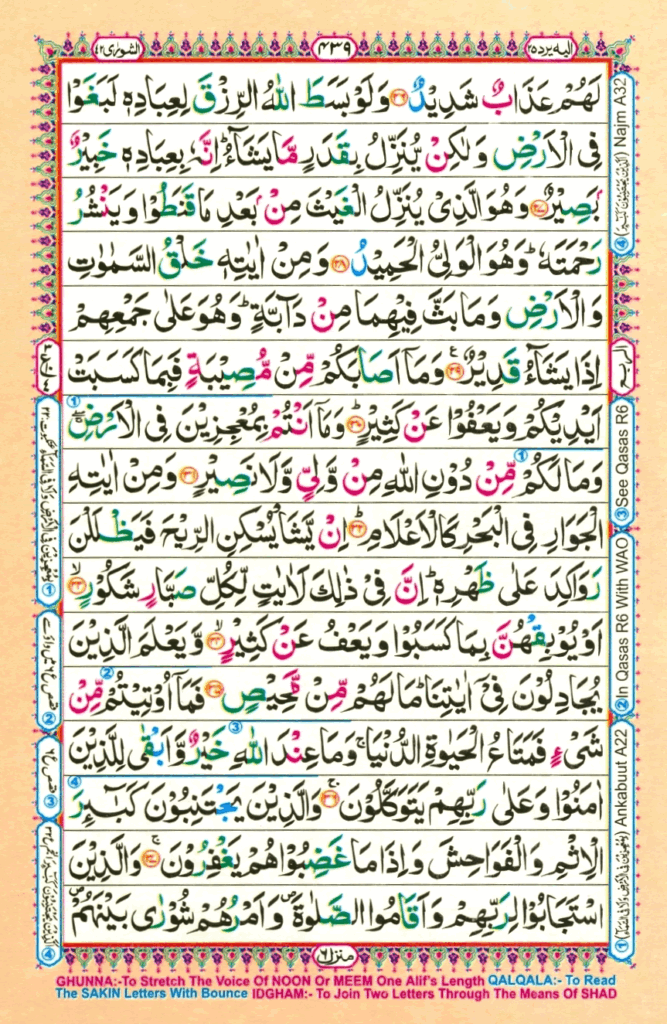 الشورى ٤٢
٤٣٩
اليه يرده ٢٥
لَهُمْ عَذَابٌ شَدِيْدٌ ﴿٢٦﴾ وَلَوْ بَسَطَ اللّٰهُ الرِّزْقَ لِعِبَادِهٖ لَبَغَوْا
فِى الْاَرْضِ وَلٰكِنْ يُّنَزِّلُ بِقَدَرٍ مَّا يَشَآءُ ؕ اِنَّهٗ بِعِبَادِهٖ خَبِيْرٌۢ
بَصِيْرٌ ﴿٢٧﴾ وَهُوَ الَّذِىْ يُنَزِّلُ الْغَيْثَ مِنْۢ بَعْدِ مَا قَنَطُوْا وَيَنْشُرُ
رَحْمَتَهٗ ؕ وَهُوَ الْوَلِىُّ الْحَمِيْدُ ﴿٢٨﴾ وَمِنْ اٰيٰتِهٖ خَلْقُ السَّمٰوٰتِ
وَالْاَرْضِ وَمَا بَثَّ فِيْهِمَا مِنْ دَآبَّةٍ ؕ وَهُوَ عَلٰى جَمْعِهِمْ
اِذَا يَشَآءُ قَدِيْرٌ ﴿٢٩﴾ وَمَاۤ اَصَابَكُمْ مِّنْ مُّصِيْبَةٍ فَبِمَا كَسَبَتْ
اَيْدِيْكُمْ وَيَعْفُوْا عَنْ كَثِيْرٍ ﴿٣٠﴾ وَمَاۤ اَنْتُمْ بِمُعْجِزِيْنَ فِى الْاَرْضِ
وَمَا لَكُمْ مِّنْ دُوْنِ اللّٰهِ مِنْ وَّلِىٍّ وَّلَا نَصِيْرٍ ﴿٣١﴾ وَمِنْ اٰيٰتِهِ
الْجَوَارِ فِى الْبَحْرِ كَالْاَعْلَامِ ﴿٣٢﴾ اِنْ يَّشَاْ يُسْكِنِ الرِّيْحَ فَيَظْلَلْنَ
رَوَاكِدَ عَلٰى ظَهْرِهٖ ؕ اِنَّ فِىْ ذٰلِكَ لَاٰيٰتٍ لِّكُلِّ صَبَّارٍ شَكُوْرٍ ﴿٣٣﴾
اَوْ يُوْبِقْهُنَّ بِمَا كَسَبُوْا وَيَعْفُ عَنْ كَثِيْرٍ ﴿٣٤﴾ وَّيَعْلَمَ الَّذِيْنَ
يُجَادِلُوْنَ فِىْۤ اٰيٰتِنَا ؕ مَا لَهُمْ مِّنْ مَّحِيْصٍ ﴿٣٥﴾ فَمَاۤ اُوْتِيْتُمْ مِّنْ
شَىْءٍ فَمَتَاعُ الْحَيٰوةِ الدُّنْيَا ۚ وَمَا عِنْدَ اللّٰهِ خَيْرٌ وَّاَبْقٰى لِلَّذِيْنَ
اٰمَنُوْا وَعَلٰى رَبِّهِمْ يَتَوَكَّلُوْنَ ﴿٣٦﴾ وَالَّذِيْنَ يَجْتَنِبُوْنَ كَبٰٓئِرَ
الْاِثْمِ وَالْفَوَاحِشَ وَاِذَا مَا غَضِبُوْا هُمْ يَغْفِرُوْنَ ﴿٣٧﴾ وَالَّذِيْنَ
اسْتَجَابُوْا لِرَبِّهِمْ وَاَقَامُوا الصَّلٰوةَ وَاَمْرُهُمْ شُوْرٰى بَيْنَهُمْ
منزل ٦
④ Najm A32
③ See Qasas R6
② In Qasas R6 With WAO
① Ankabuut A22
GHUNNA:-To Stretch The Voice Of NOON Or MEEM One Alif's Length QALQALA:- To Read
The SAKIN Letters With Bounce IDGHAM:- To Join Two Letters Through The Means Of SHAD